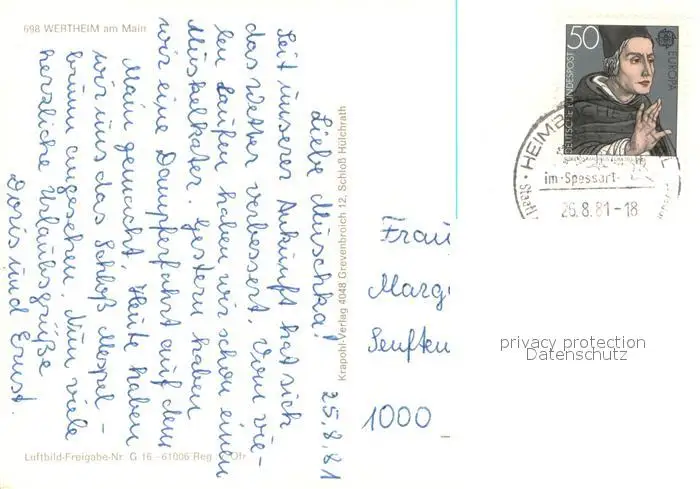 698 WERTHEIM am Main
25.8.81
Liebe Muschka!
Seit unserer Ankunft hat sich
das Wetter verbessert. Vom vie-
len Laufen haben wir schon einen
Muskelkater. Gestern haben
wir eine Dampferfahrt auf dem
Main gemacht. Heute haben
wir uns das Schloß Mespel-
brunn angesehen. Nun viele
herzliche Urlaubsgrüße
Doris und Ernst.
Luftbild-Freigabe-Nr. G 16 - 61006 Reg. Ofr
Krapohl-Verlag 4048 Grevenbroich 12, Schloß Hülchrath
50
DEUTSCHE BUNDESPOST
EUROPA
HEIMB
im Spessart
Staatl
26.8.81-18
Frau
Marg
Senften
1000
privacy protection
Datenschutz